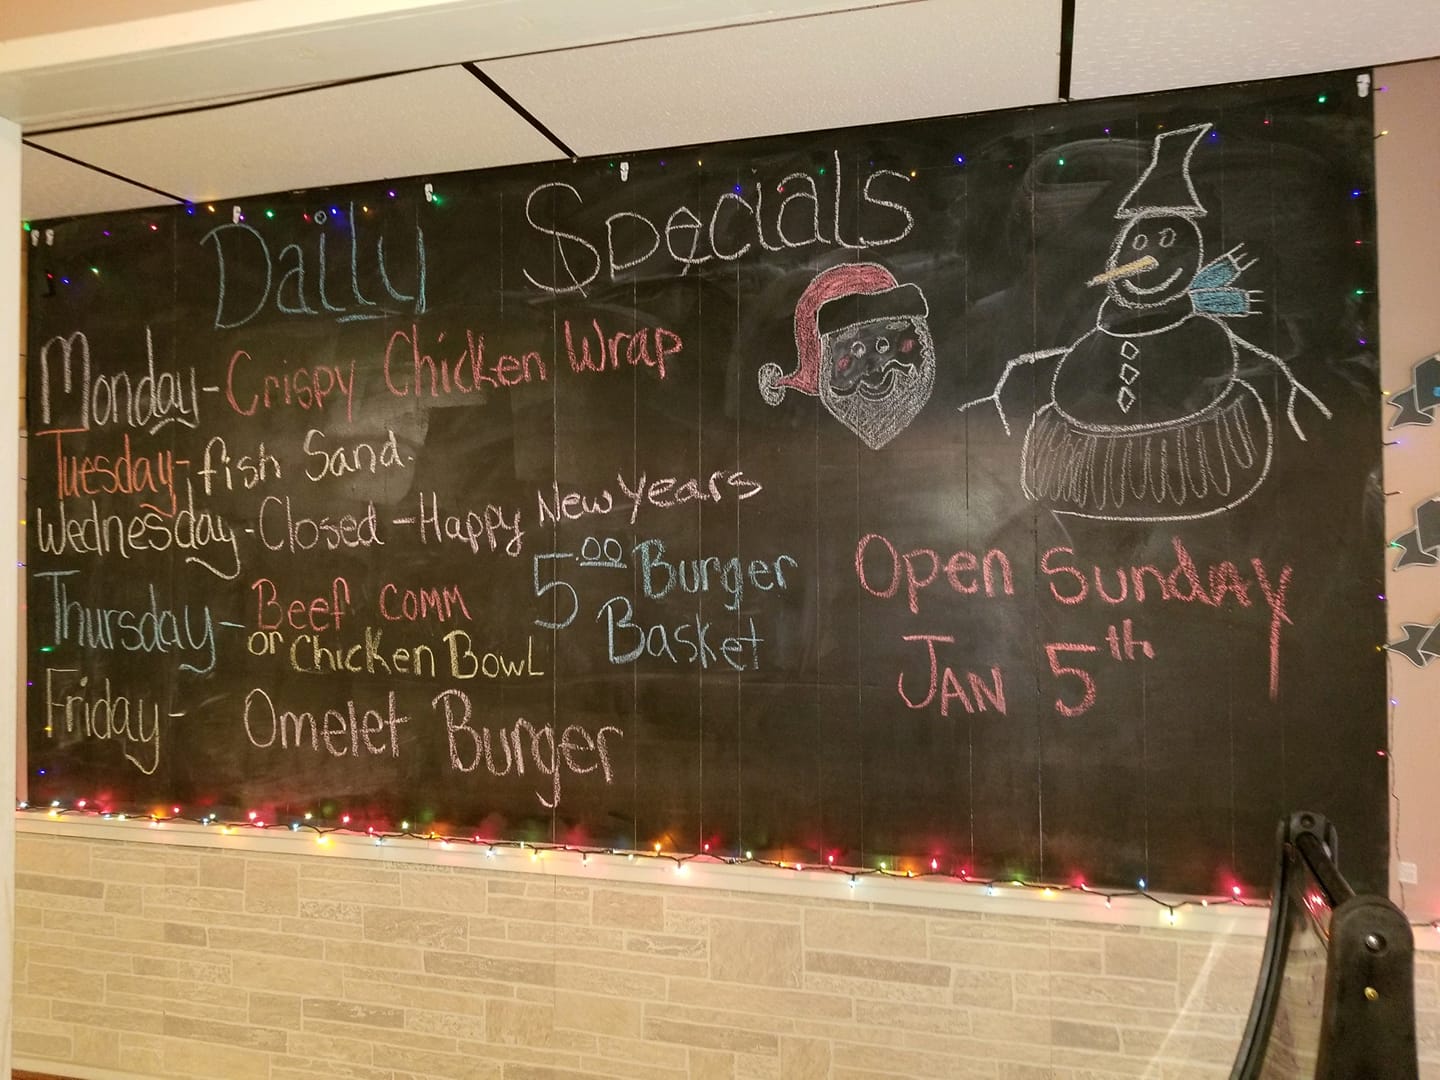 Daily Specials
Monday - Crispy Chicken Wrap
Tuesday - fish Sand.
Wednesday - Closed - Happy New Years
Thursday - Beef Comm
or Chicken Bowl
5.00 Burger
Basket
Friday - Omelet Burger
Open Sunday
Jan 5th